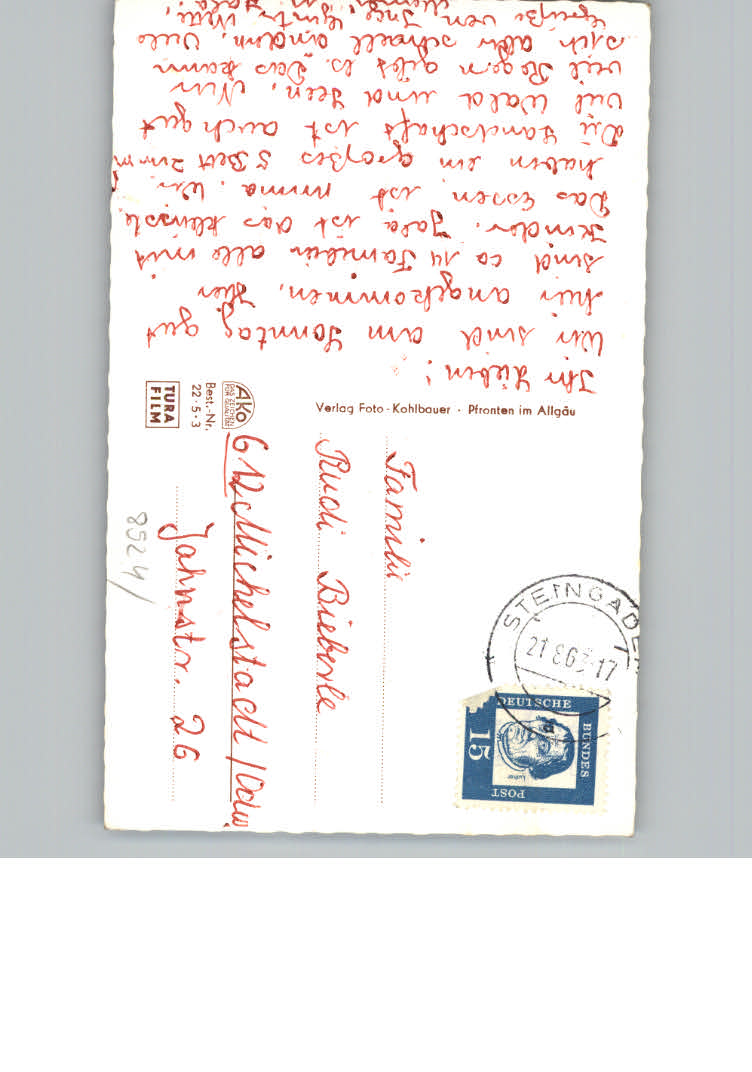 Ihr Lieben!
Wir sind am Sonntag gut
hier angekommen. Hier
sind ca 14 Familien alle mit
Kinder. Jala ist das kleinste.
Das Essen ist prima. Wir
haben ein großes 5 Bett Zimm
Die Landschaft ist auch gut
viel Wald und Seen. Nur
viel Regen gibt es. Das kann
sich aber schnell ändern. Viele
Grüße von Inge, Günter,
Verlag Foto-Kohlbauer · Pfronten im Allgäu
Ako
DAS ZEICHEN
FÜR QUALITÄT
Best.-Nr.
22·5·3
TURA
FILM
Familie
Rudi Bieberle
612 Michelstadt/Odw
Jahnstr. 26
8524/
STEINGADEN
21.8.63-17
DEUTSCHE
BUNDES
POST
15
Luther